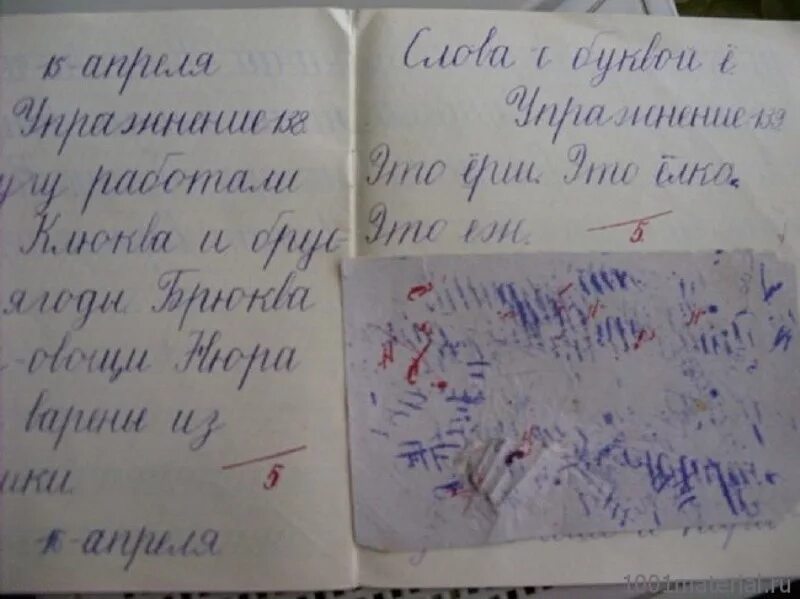 15-апреля
Упражнение 138.
угу работали
Клюква и брус-
ягоды. Брюква
-овощи Нюра
варенье из
ики.
5
16-апреля
Слова с буквой ё.
Упражнение 139
Это ёрш. Это ёлка.
Это еж.
5
1001material.ru